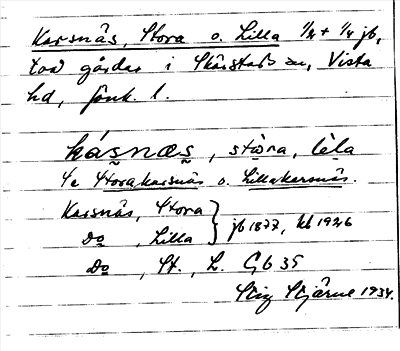 Karsnäs, Stora o. Lilla 1/2 + 1/4 jb,
två gårdar i Skärstads sn, Vista
hd, Jönk. l.
kásnæs, stora, lela
Stora karsnäs o. Lilla karsnäs.
Karsnäs, Stora } jb 1877, kb 1926
Do , Lilla
Do , St., L. Gb 35
Stig Stjärne 1934.